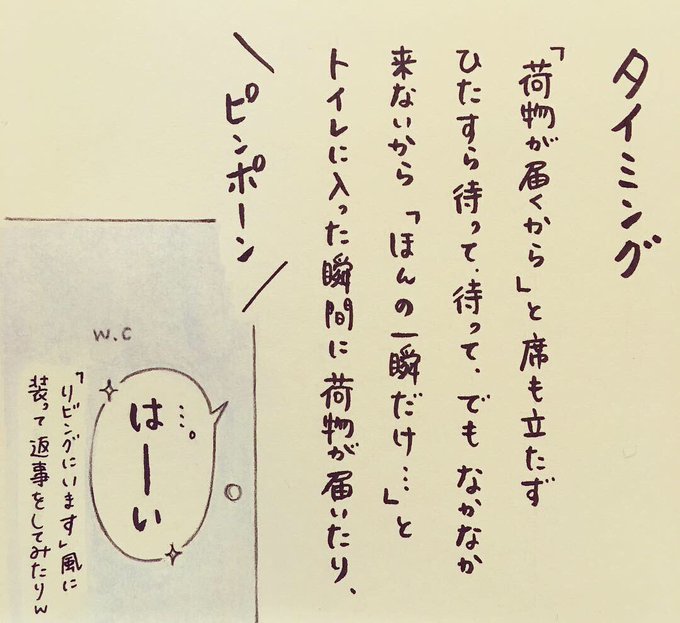 タイミング
「荷物が届くから」と席も立たず
ひたすら待って、待って、でもなかなか
来ないから「ほんの一瞬だけ…」と
トイレに入った瞬間に荷物が届いたり、
ピンポーン
W.C
…。
はーい
「リビングにいます」風に
装って返事をしてみたりw